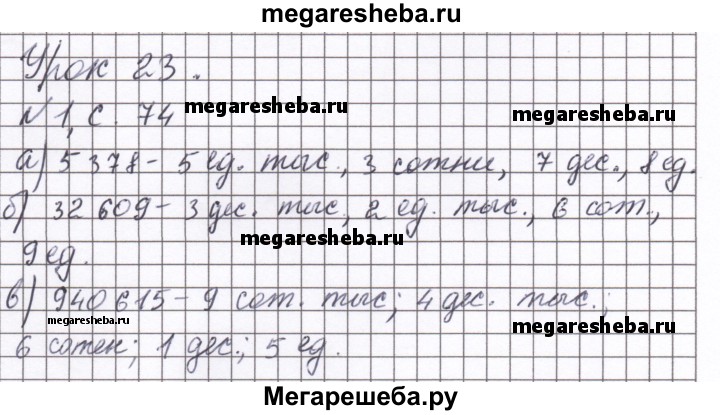 megaresheba.ru
Урок 23.
№1, с. 74
megaresheba.ru
megaresheba.ru
а) 5 378 - 5 ед. тыс., 3 сотни, 7 дес., 8 ед.
б) 32 609 - 3 дес. тыс, 2 ед. тыс., 6 сот.,
megaresheba.ru
9 ед.
в) 940 615 - 9 сот. тыс; 4 дес. тыс.;
megaresheba.ru
megaresheba.ru
6 сотен; 1 дес.; 5 ед.
Мегарешеба.ру